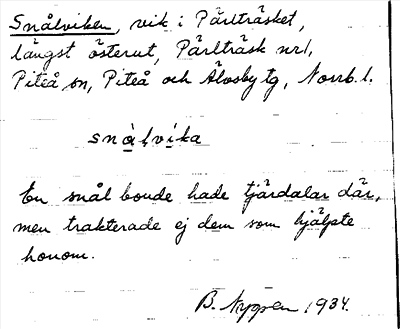 Snålviken, vik i Pärlträsket,
längst österut, Pärlträsk nr1,
Piteå sn, Piteå och Älvsby tg, Norrb. l.
snålvika
En snål bonde hade tjärdalar där,
men trakterade ej dem som hjälpte
honom.
B. 1934.